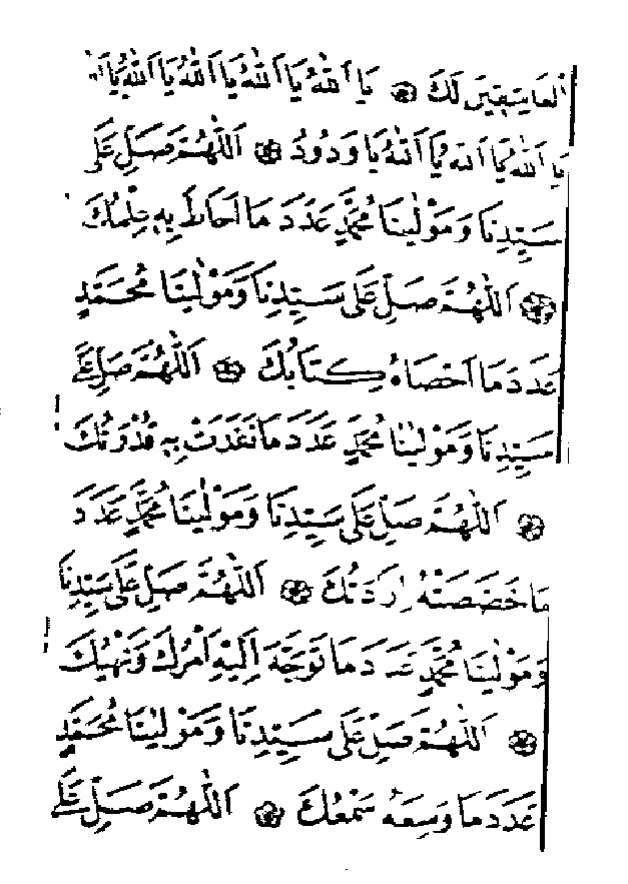 الْعَاشِقِينَ لَكَ ۞ يَا اَللّٰهُ يَا اَللّٰهُ يَا اَللّٰهُ يَا اَللّٰهُ يَا
يَا اَللّٰهُ يَا اَللّٰهُ يَا اَللّٰهُ يَا وَدُودُ ۞ اَللّٰهُمَّ صَلِّ عَلٰى
سَيِّدِنَا وَمَوْلٰينَا مُحَمَّدٍ عَدَدَ مَا اَحَاطَ بِهِ عِلْمُكَ
۞ اَللّٰهُمَّ صَلِّ عَلٰى سَيِّدِنَا وَمَوْلٰينَا مُحَمَّدٍ
عَدَدَ مَا اَحْصَاهُ كِتَابُكَ ۞ اَللّٰهُمَّ صَلِّ عَلٰى
سَيِّدِنَا وَمَوْلٰينَا مُحَمَّدٍ عَدَدَ مَا نَفَذَتْ بِهِ قُدْرَتُكَ
۞ اَللّٰهُمَّ صَلِّ عَلٰى سَيِّدِنَا وَمَوْلٰينَا مُحَمَّدٍ عَدَدَ
مَا خَصَّصَتْهُ اِرَدَتُكَ ۞ اَللّٰهُمَّ صَلِّ عَلٰى سَيِّدِنَا
وَمَوْلٰينَا مُحَمَّدٍ عَدَدَ مَا تَوَجَّهَ اِلَيْهِ اَمْرُكَ وَنَهْيُكَ
۞ اَللّٰهُمَّ صَلِّ عَلٰى سَيِّدِنَا وَمَوْلٰينَا مُحَمَّدٍ
عَدَدَ مَا وَسِعَهُ سَمْعُكَ ۞ اَللّٰهُمَّ صَلِّ عَلٰى